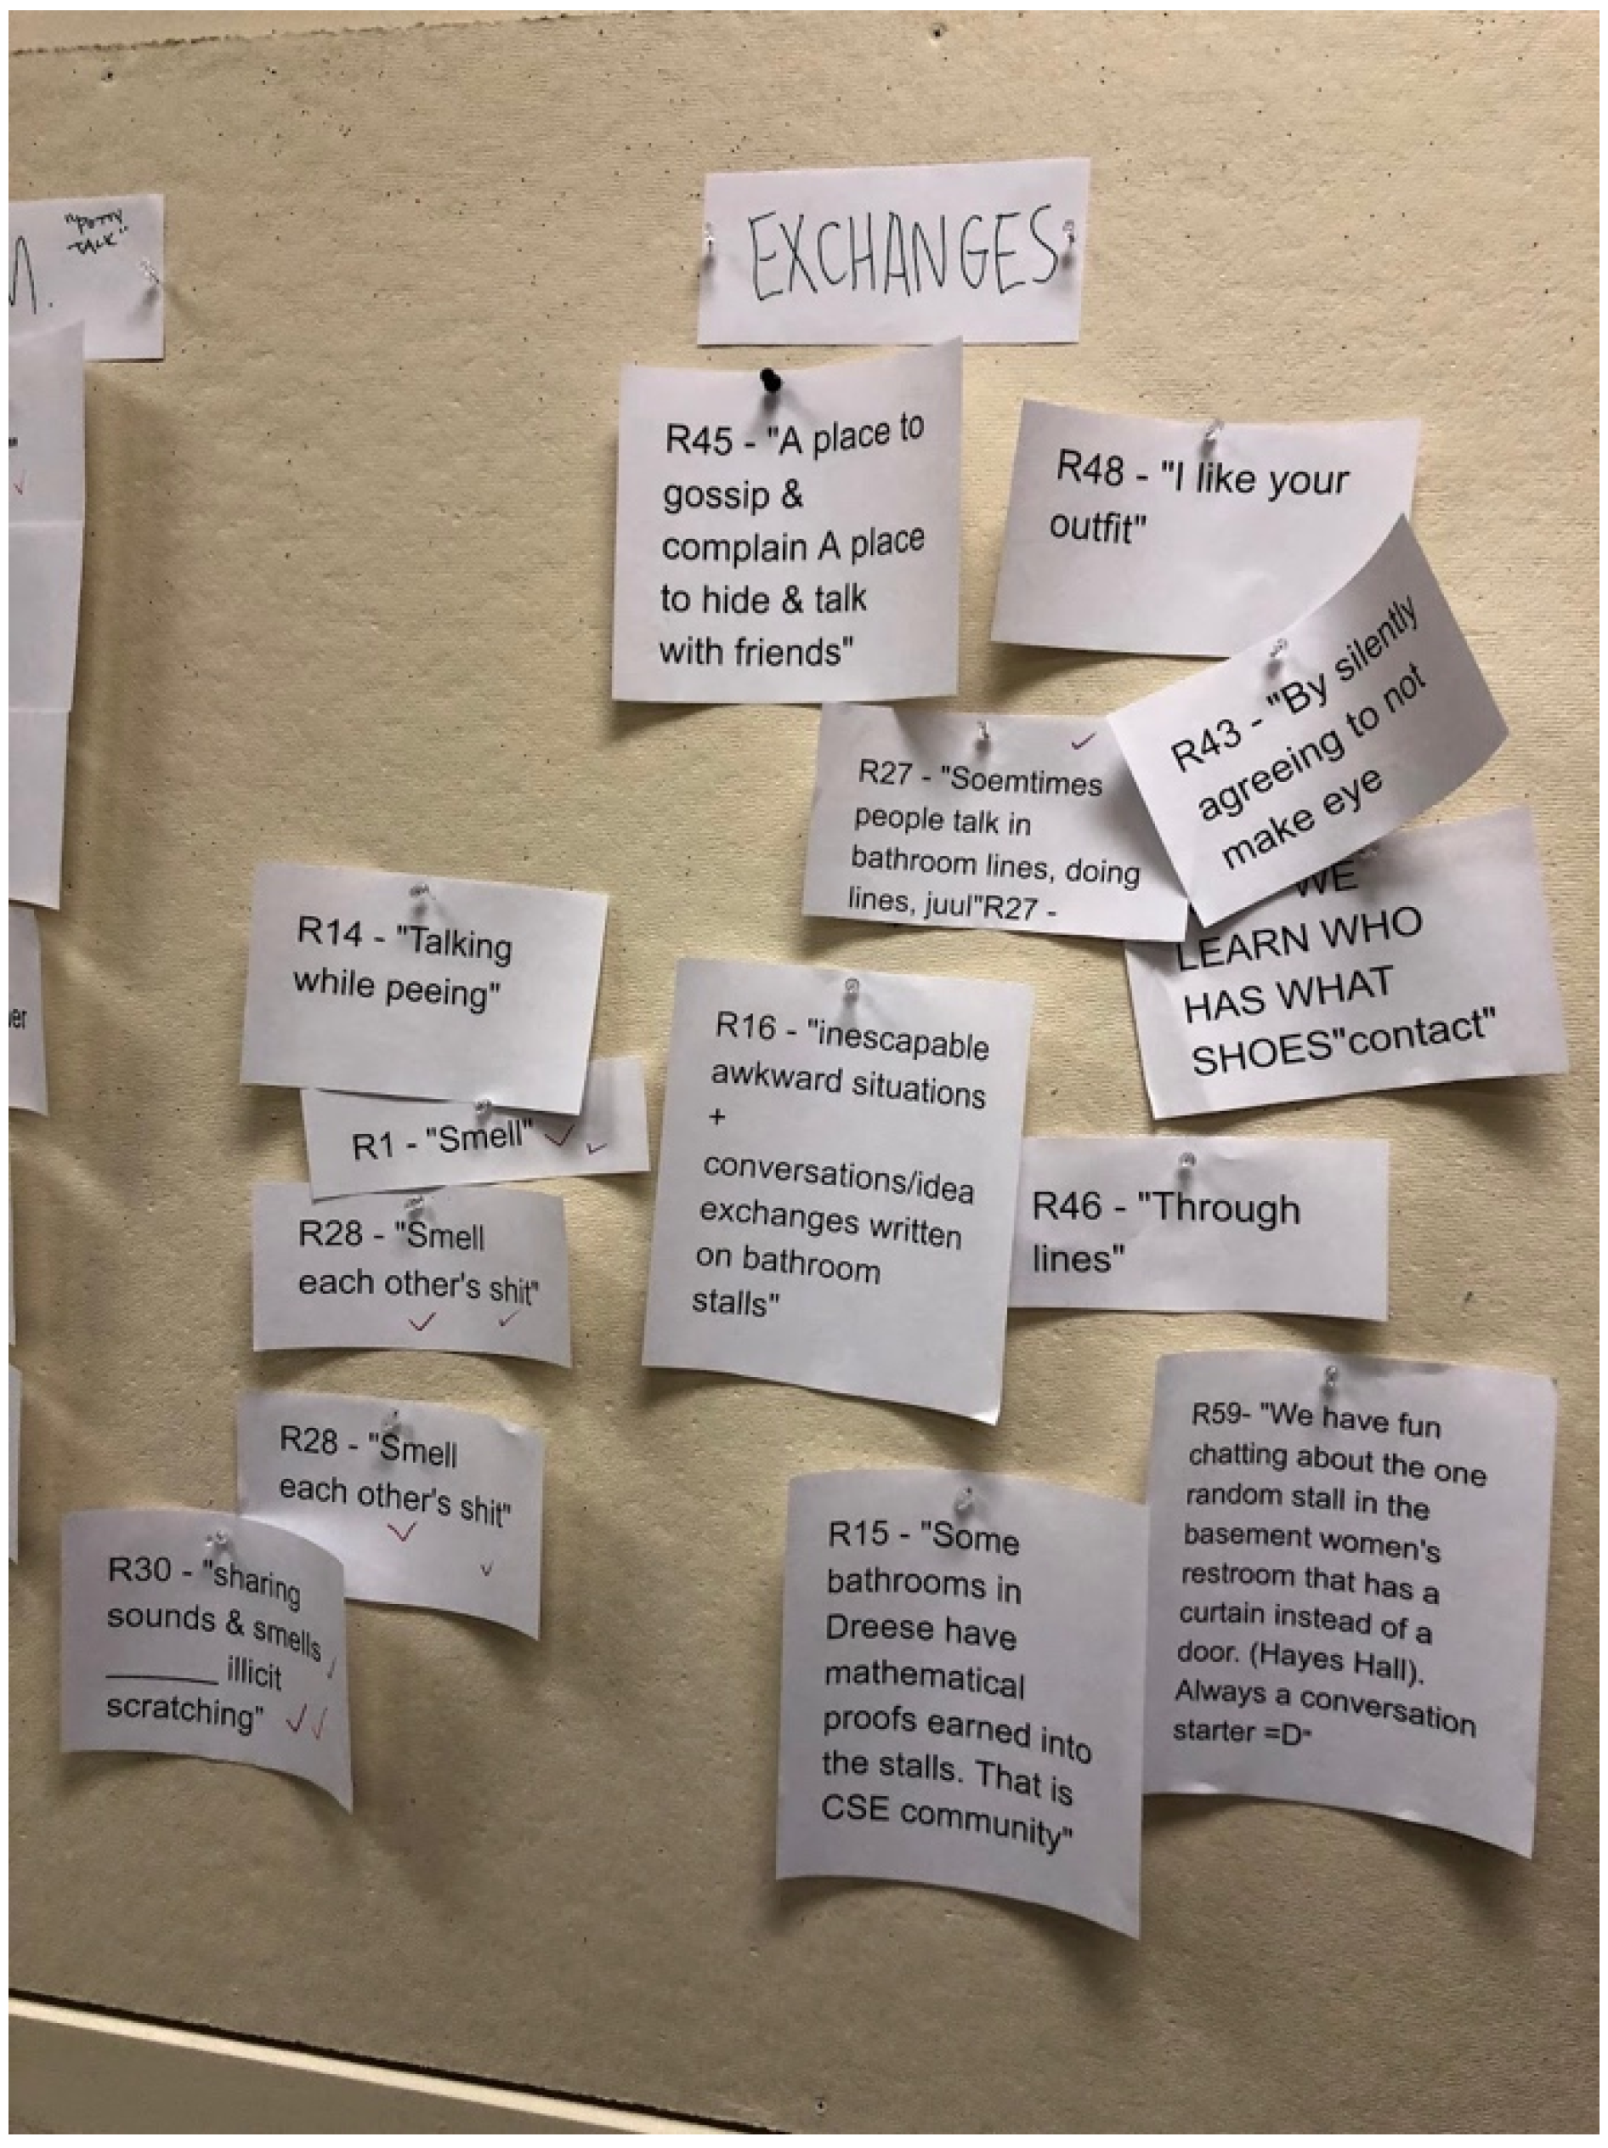 "POTTY
TALK"
EXCHANGES
R45 - "A place to
gossip &
complain A place
to hide & talk
with friends"
R48 - "I like your
outfit"
R43 - "By silently
agreeing to not
make eye
R27 - "Soemtimes
people talk in
bathroom lines, doing
lines, juul"R27 -
WE
LEARN WHO
HAS WHAT
SHOES"contact"
R14 - "Talking
while peeing"
R1 - "Smell"
R28 - "Smell
each other's shit"
R28 - "Smell
each other's shit"
R30 - "sharing
sounds & smells
________ illicit
scratching"
R16 - "inescapable
awkward situations
+
conversations/idea
exchanges written
on bathroom
stalls"
R46 - "Through
lines"
R15 - "Some
bathrooms in
Dreese have
mathematical
proofs earned into
the stalls. That is
CSE community"
R59- "We have fun
chatting about the one
random stall in the
basement women's
restroom that has a
curtain instead of a
door. (Hayes Hall).
Always a conversation
starter =D"